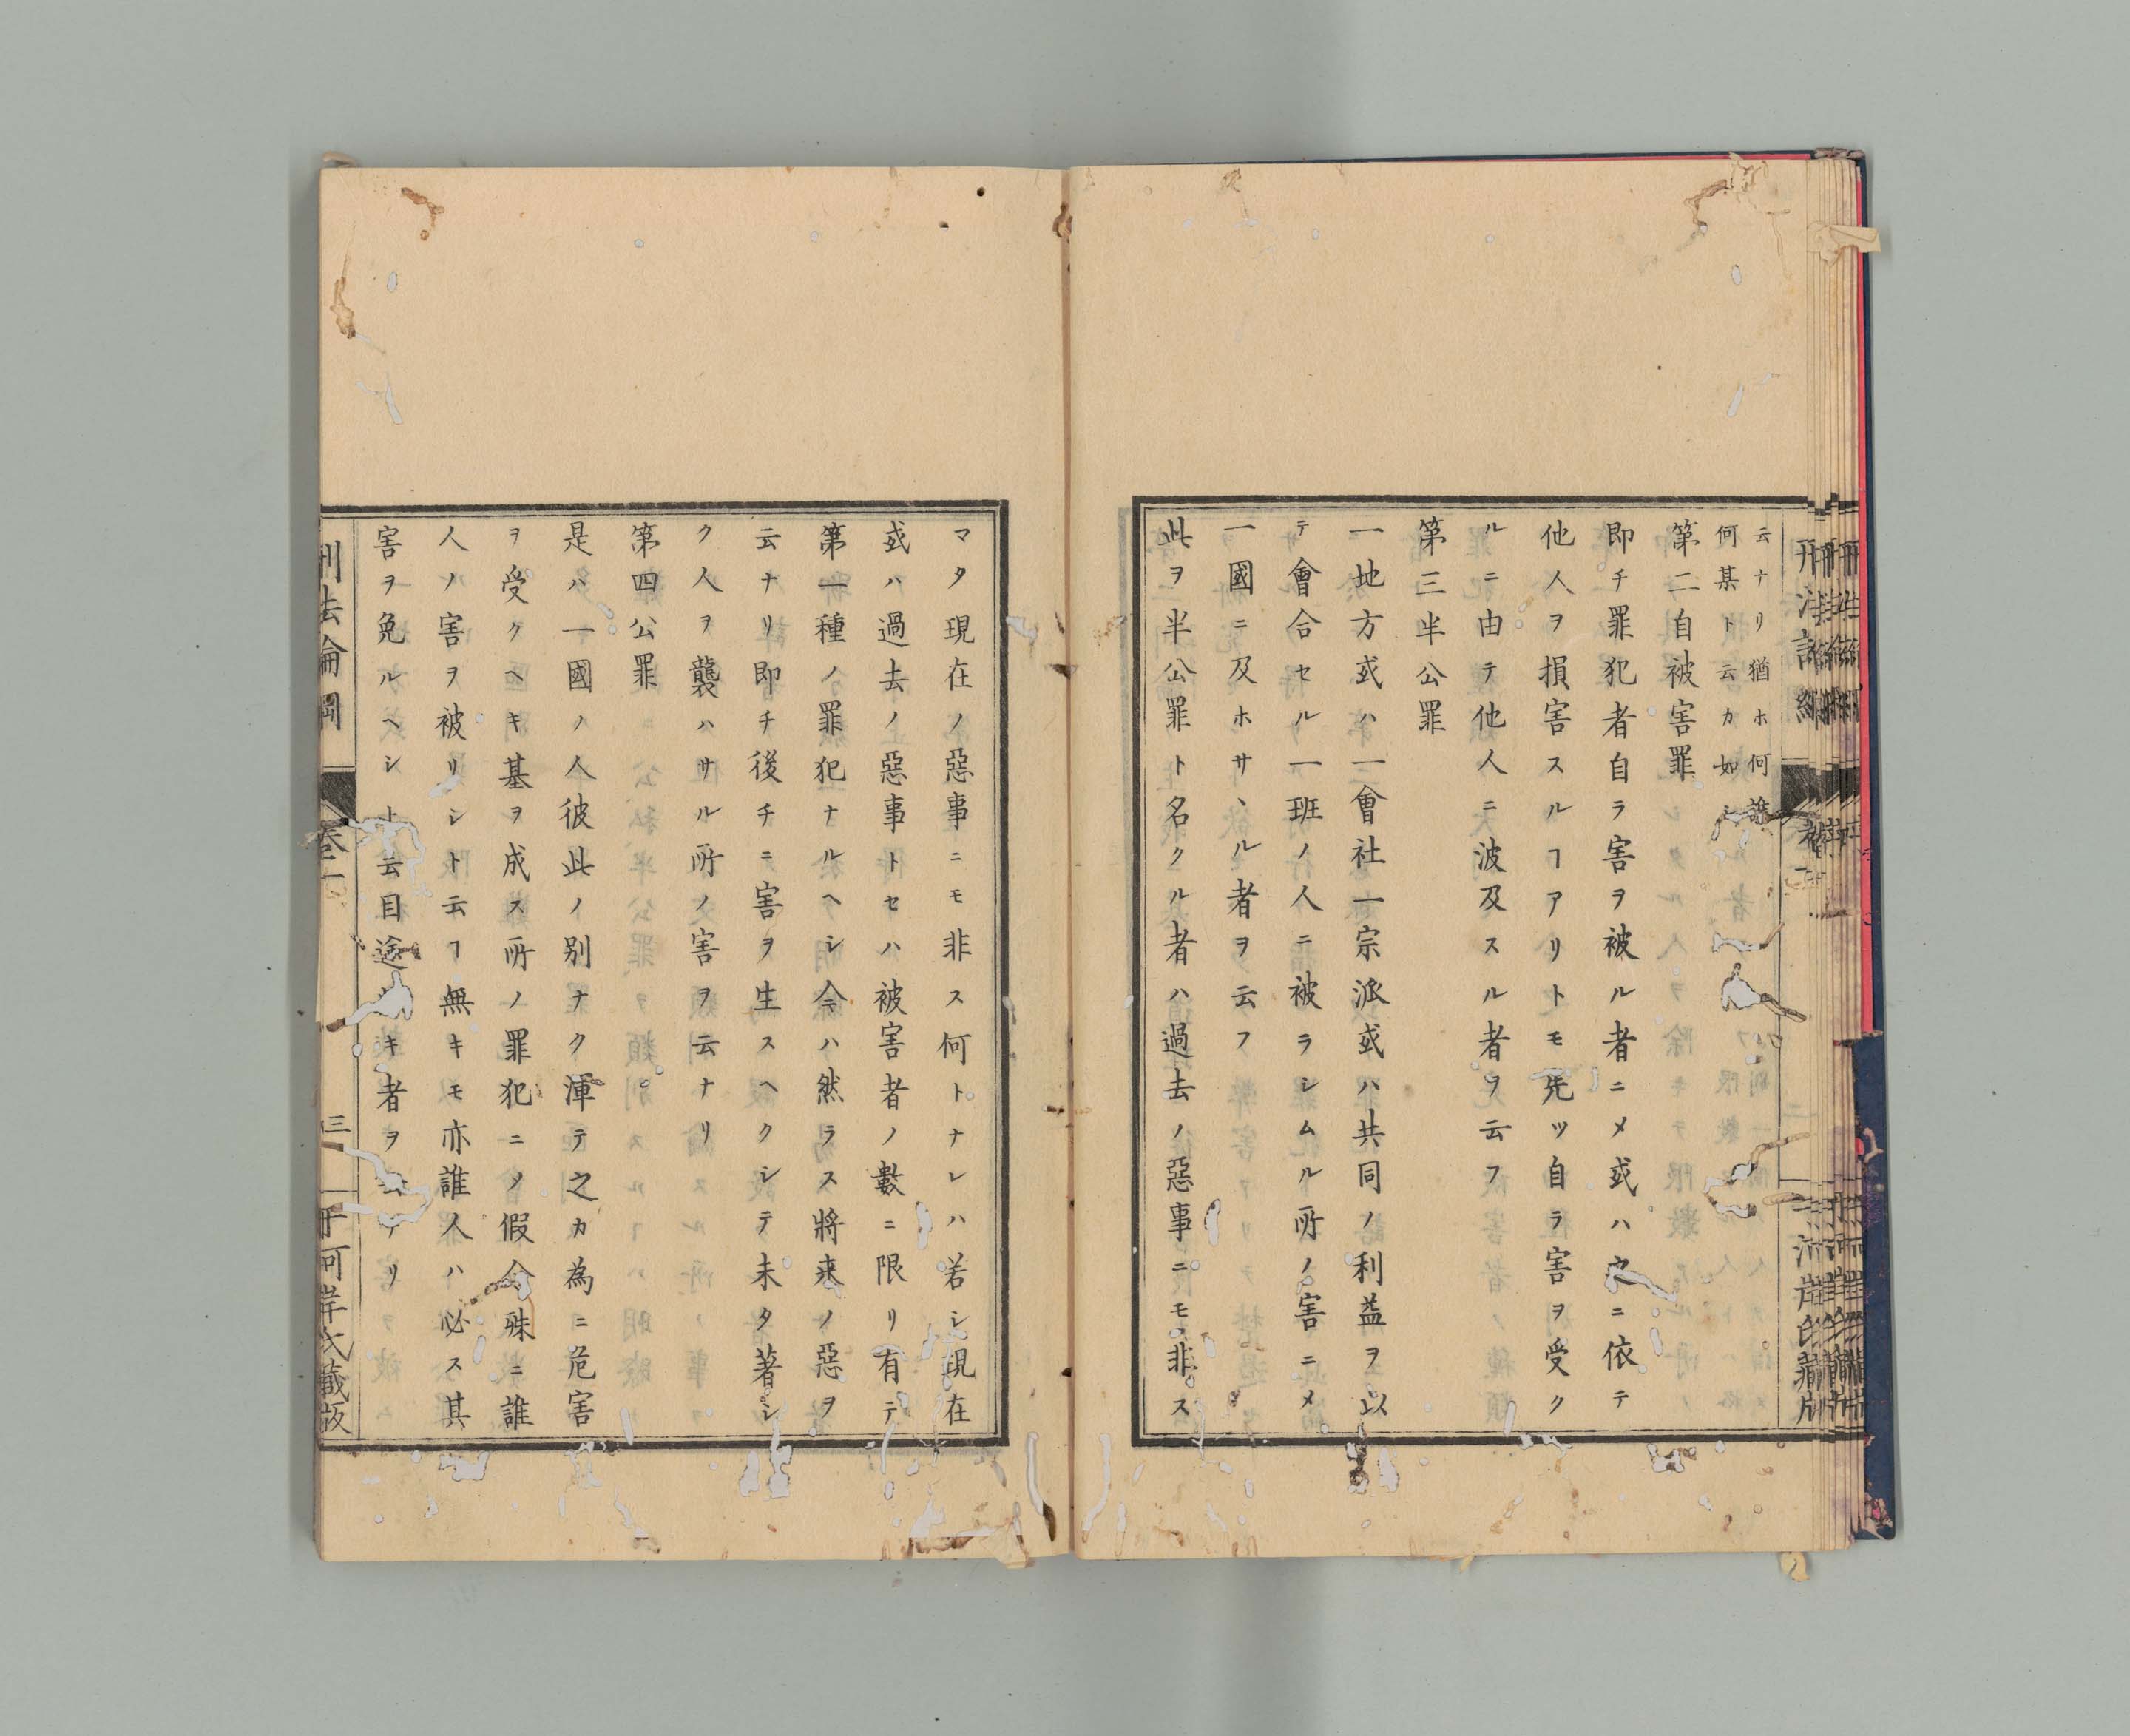 云ナリ猶ホ何誰
何某ト云カ如シ
第二自被害罪
即チ罪犯者自ラ害ヲ被ル者ニメ或ハ之ニ依テ
他人ヲ損害スルヿアリトモ先ツ自ラ害ヲ受ク
ルニ由テ他人ニ波及スル者ヲ云フ
第三半公罪
一地方或ハ一會社一宗派或ハ共同ノ利益ヲ以
テ會合セル一班ノ人ニ被ラシムル所ノ害ニメ
一國ニ及ホサヽル者ヲ云フ
此ヲ半公罪ト名クル者ハ過去ノ惡事ニモ非ス
マタ現在ノ惡事ニモ非ス何トナレハ若シ現在
或ハ過去ノ惡事トセハ被害者ノ數ニ限リ有テ
第一種ノ罪犯ナルヘシ今ハ然ラス將来ノ惡ヲ
云ナリ即チ後チニ害ヲ生スヘクシテ未タ著シ
ク人ヲ襲ハサル所ノ害ヲ云ナリ
第四公罪
是ハ一國ノ人彼此ノ別ナク渾テ之カ為ニ危害
ヲ受クヘキ基ヲ成ス所ノ罪犯ニメ假令殊ニ誰
人ノ害ヲ被リシト云フヿ無キモ亦誰人ハ必ス其
害ヲ免ルヘシト云目途キ者ヲナリ
刑法論綱
卷二
三
千河岸氏藏版